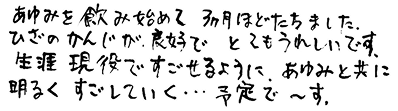 あゆみを飲み始めて 3ヵ月ほどたちました.
ひざのかんじが、良好で とてもうれしいです.
生涯現役ですごせるように、あゆみと共に
明るく すごしていく…予定で〜す.